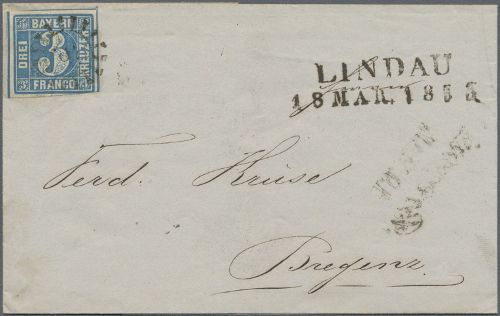 BAYERN
DREI
3
KREUZER
FRANCO
LINDAU
18 MAR. 1853
Ferd. Kruse
Bregenz.